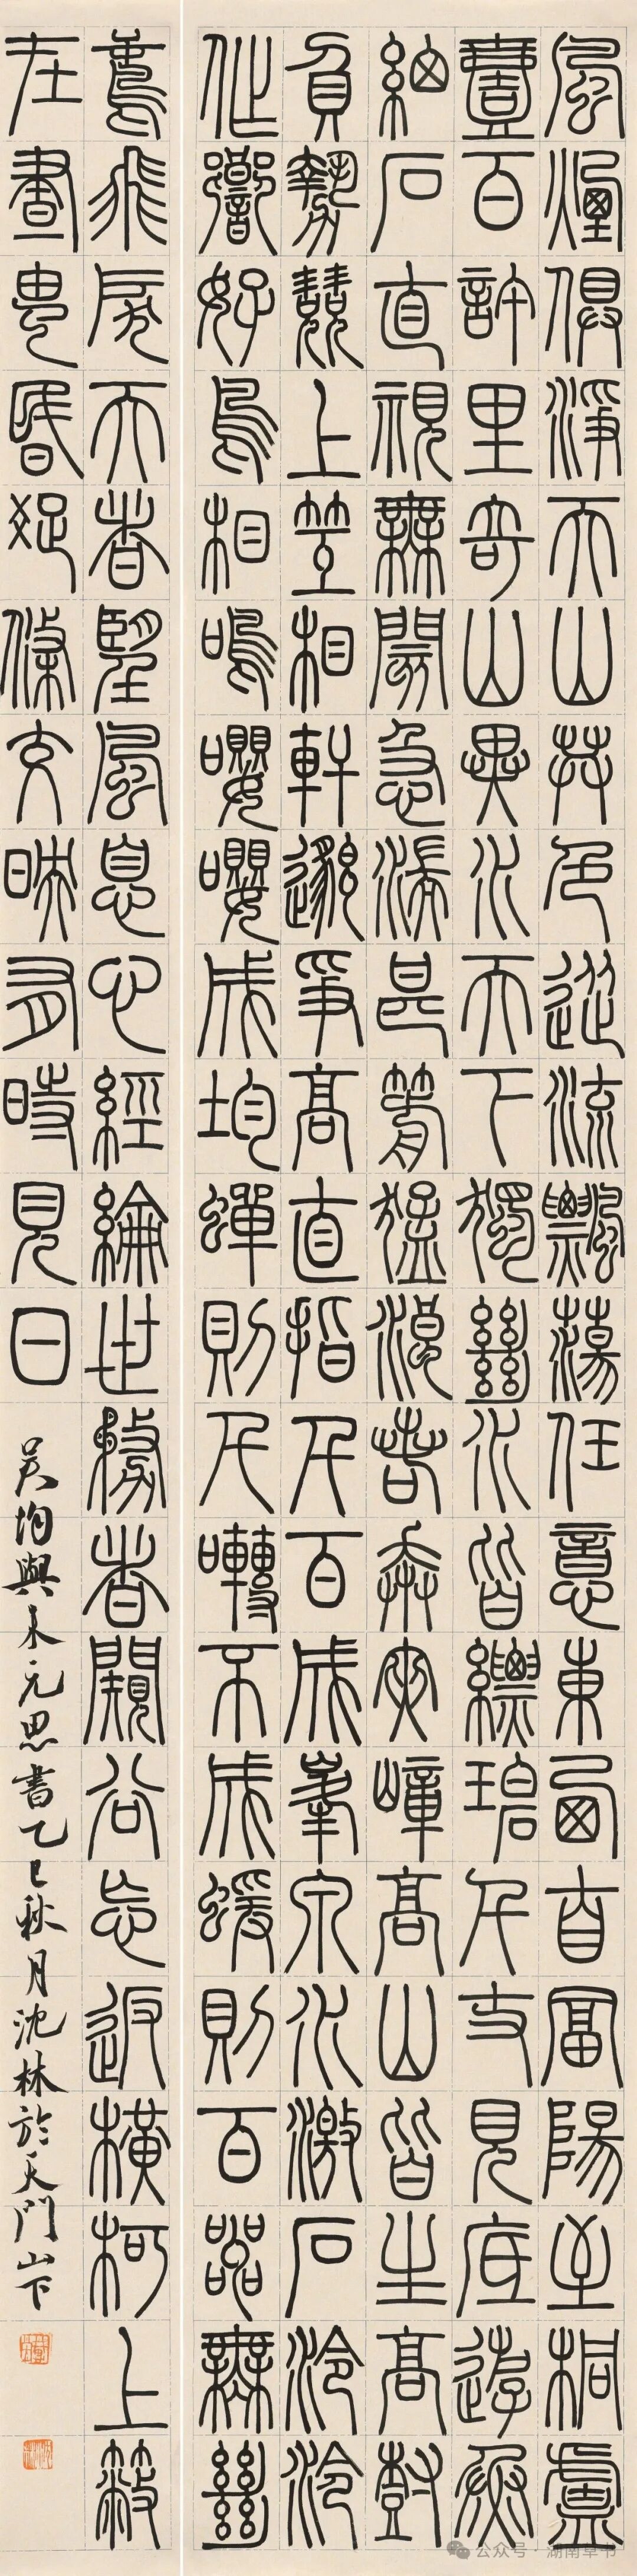 風煙俱淨天山共色從流飄蕩任意東西自富陽至桐廬
壹百許里奇山異水天下獨絕水皆縹碧千丈見底游魚
細石直視無閡急湍甚箭猛浪若奔夾嶂高山皆生高樹
負勢競上互相軒邈爭高直指千百成峯泉水激石泠泠
作響好鳥相鳴嚶嚶成均蟬則千囀不成蝯則百嘂無絕
鳶飛戾天者望風息心經綸世務者闚谷忘返橫柯上蔽
在晝猶昏疏條交映有時見日
吳均與朱元思書乙巳秋月沈林於天門山下
公众号·湖南草书